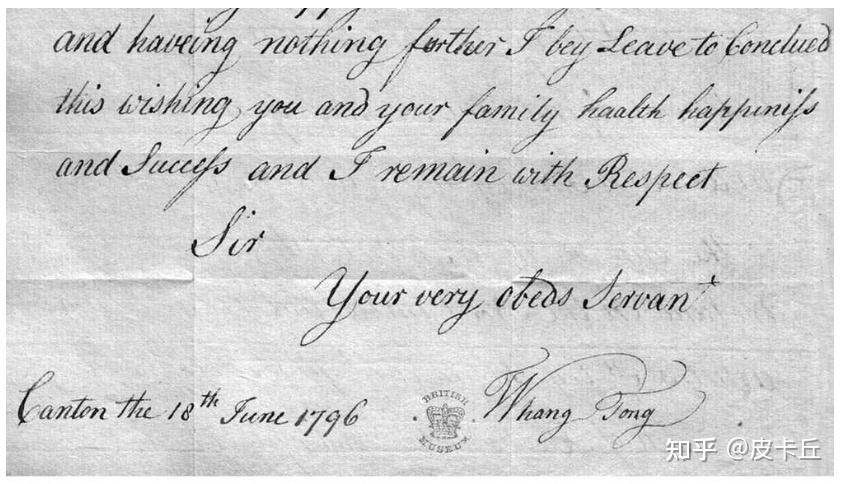 and haveing nothing further I bey Leave to Conclued
this wishing you and your family haalth happiness
and Success and I remain with Respect
Sir
Your very obeds Servant
Canton the 18th June 1796
BRITISH MUSEUM
Whang Tong
知乎 @皮卡丘